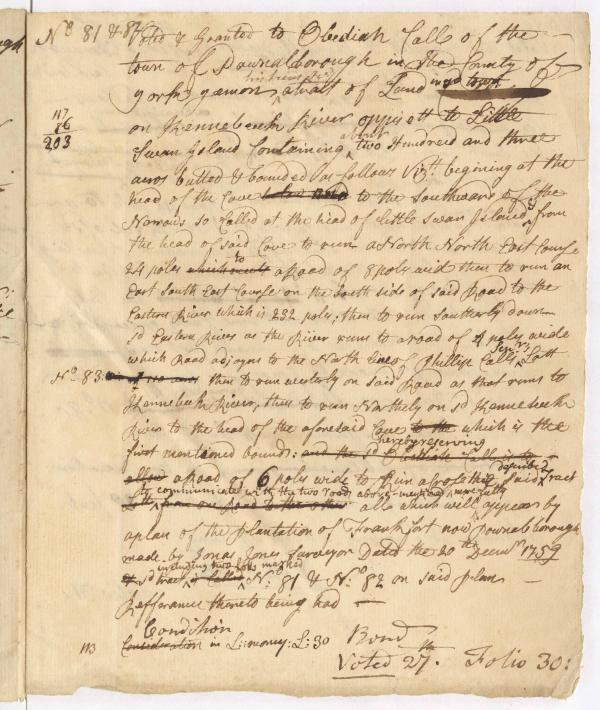 Nº 81 & 82 Voted & Granted to Obediah Call of the
town of Pownalborough in the County of
york yeman his heirs &c a tratt of Land in sd town
117
86
203
on Kennebeck River oppisett to Little
Swan Island Containing about two Hundred and three
acres butted & bounded as follows Vizt. begining at the
head of the Cove to the Southward of the
Narrows so Called at the head of little Swan Island, from
the head of said Cove to run a North North East Course
24 poles which to a Road of 8 poles wid then to run an
East South East Course on the South side of said Road to the
Eastern River which is 232 poles; then to run Southerly down
sd Eastern River as the River runs to a road of 4 poles wide
which Road adjoyns to the North line of Phillip Calls Senr. Lott
Nº 83: then to run westerly on said Road as that runs to
Kennebeck River, then to run Northely on sd Kennebeck
River to the head of the aforesaid Cove which is the
first mentioned bounds: hereby reserving
a Road of 6 poles wide to Run a
to communicate with the two roads above mentioned more fully
described
said Tract
all which will appear by
a plan of the plantation of Frank fort now Pownalborough
made by Jonas Jones Surveyor Dated the 20th Decemr. 1759
sd tract including two lots marked
is Called Nº: 81 & Nº: 82 on said plan
Refferance thereto being had —
Condition
Consideration in L: money: L: 30 Bond
113
Voted 27th. Folio 30: